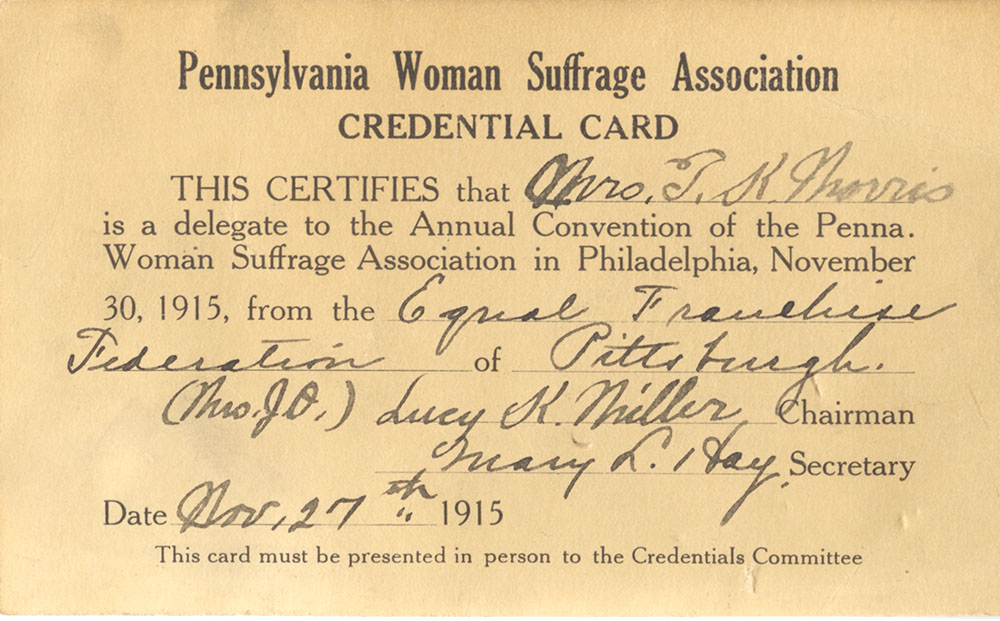 Pennsylvania Woman Suffrage Association
CREDENTIAL CARD
THIS CERTIFIES that Mrs. T. K. Morris
is a delegate to the Annual Convention of the Penna.
Woman Suffrage Association in Philadelphia, November
30, 1915, from the Equal Franchise
Federation of Pittsburgh.
(Mrs. J. O.) Lucy K. Miller, Chairman
Mary L. Hay, Secretary
Date Nov, 27th 1915
This card must be presented in person to the Credentials Committee